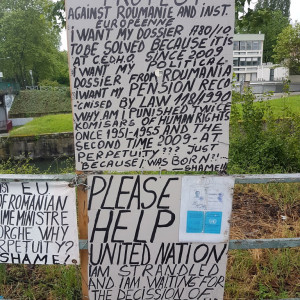 AGAINST ROUMANIE AND INST.
EUROPENNE
I WANT MY DOSSIER
TO BE SOLVED BECAUSE IT'S
AT C.E.D.H.S. SINCE 2009
I WANT MY POLITICAL
DOSSIER FROM ROUMANIA
I WANT MY PENSION RECO
CNISED BY LAW 118/1990
WHY AM I PUNISHED TWICE
KOMISARS OF HUMAN RIGHTS
ONCE 1951-1955 AND THE
SECOND TIME 2009-AT
PERPETUITY??? JUST
BECAUSE I WAS BORN?!-
SHAME!!
EU
OF ROMANIAN
IME MINISTRE
ORGHE WHY
RPETUITY??
SHAME!
PLEASE
HELP
UNITED NATION
I AM STRANDLED
AND I AM WAITING FOR
THE DECISSION OF